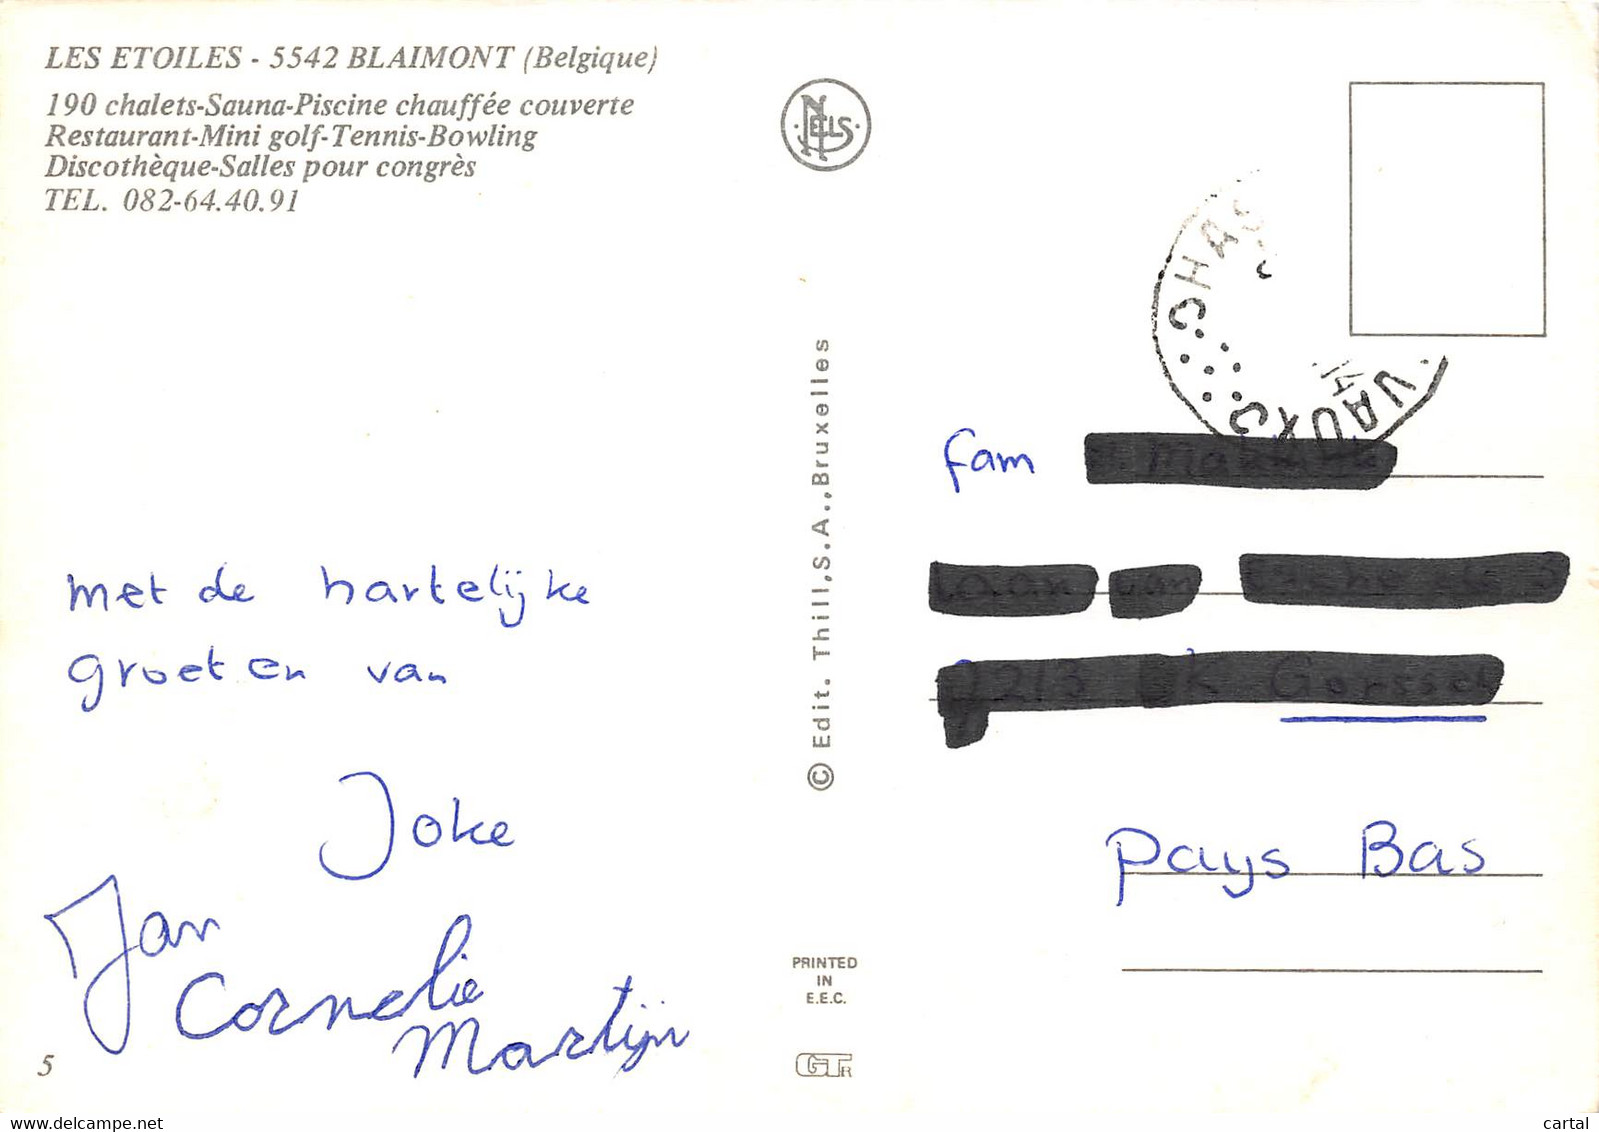 LES ETOILES - 5542 BLAIMONT (Belgique)
190 chalets-Sauna-Piscine chauffée couverte
Restaurant-Mini golf-Tennis-Bowling
Discothèque-Salles pour congrès
TEL. 082-64.40.91
met de hartelijke
groeten van
Joke
Jan
Cornelie
Martijn
5
NELLS
© Edit. Thill, S.A., Bruxelles
PRINTED
IN
E.E.C.
GTR
VAUX
fam
Pays Bas
www.delcampe.net
cartal